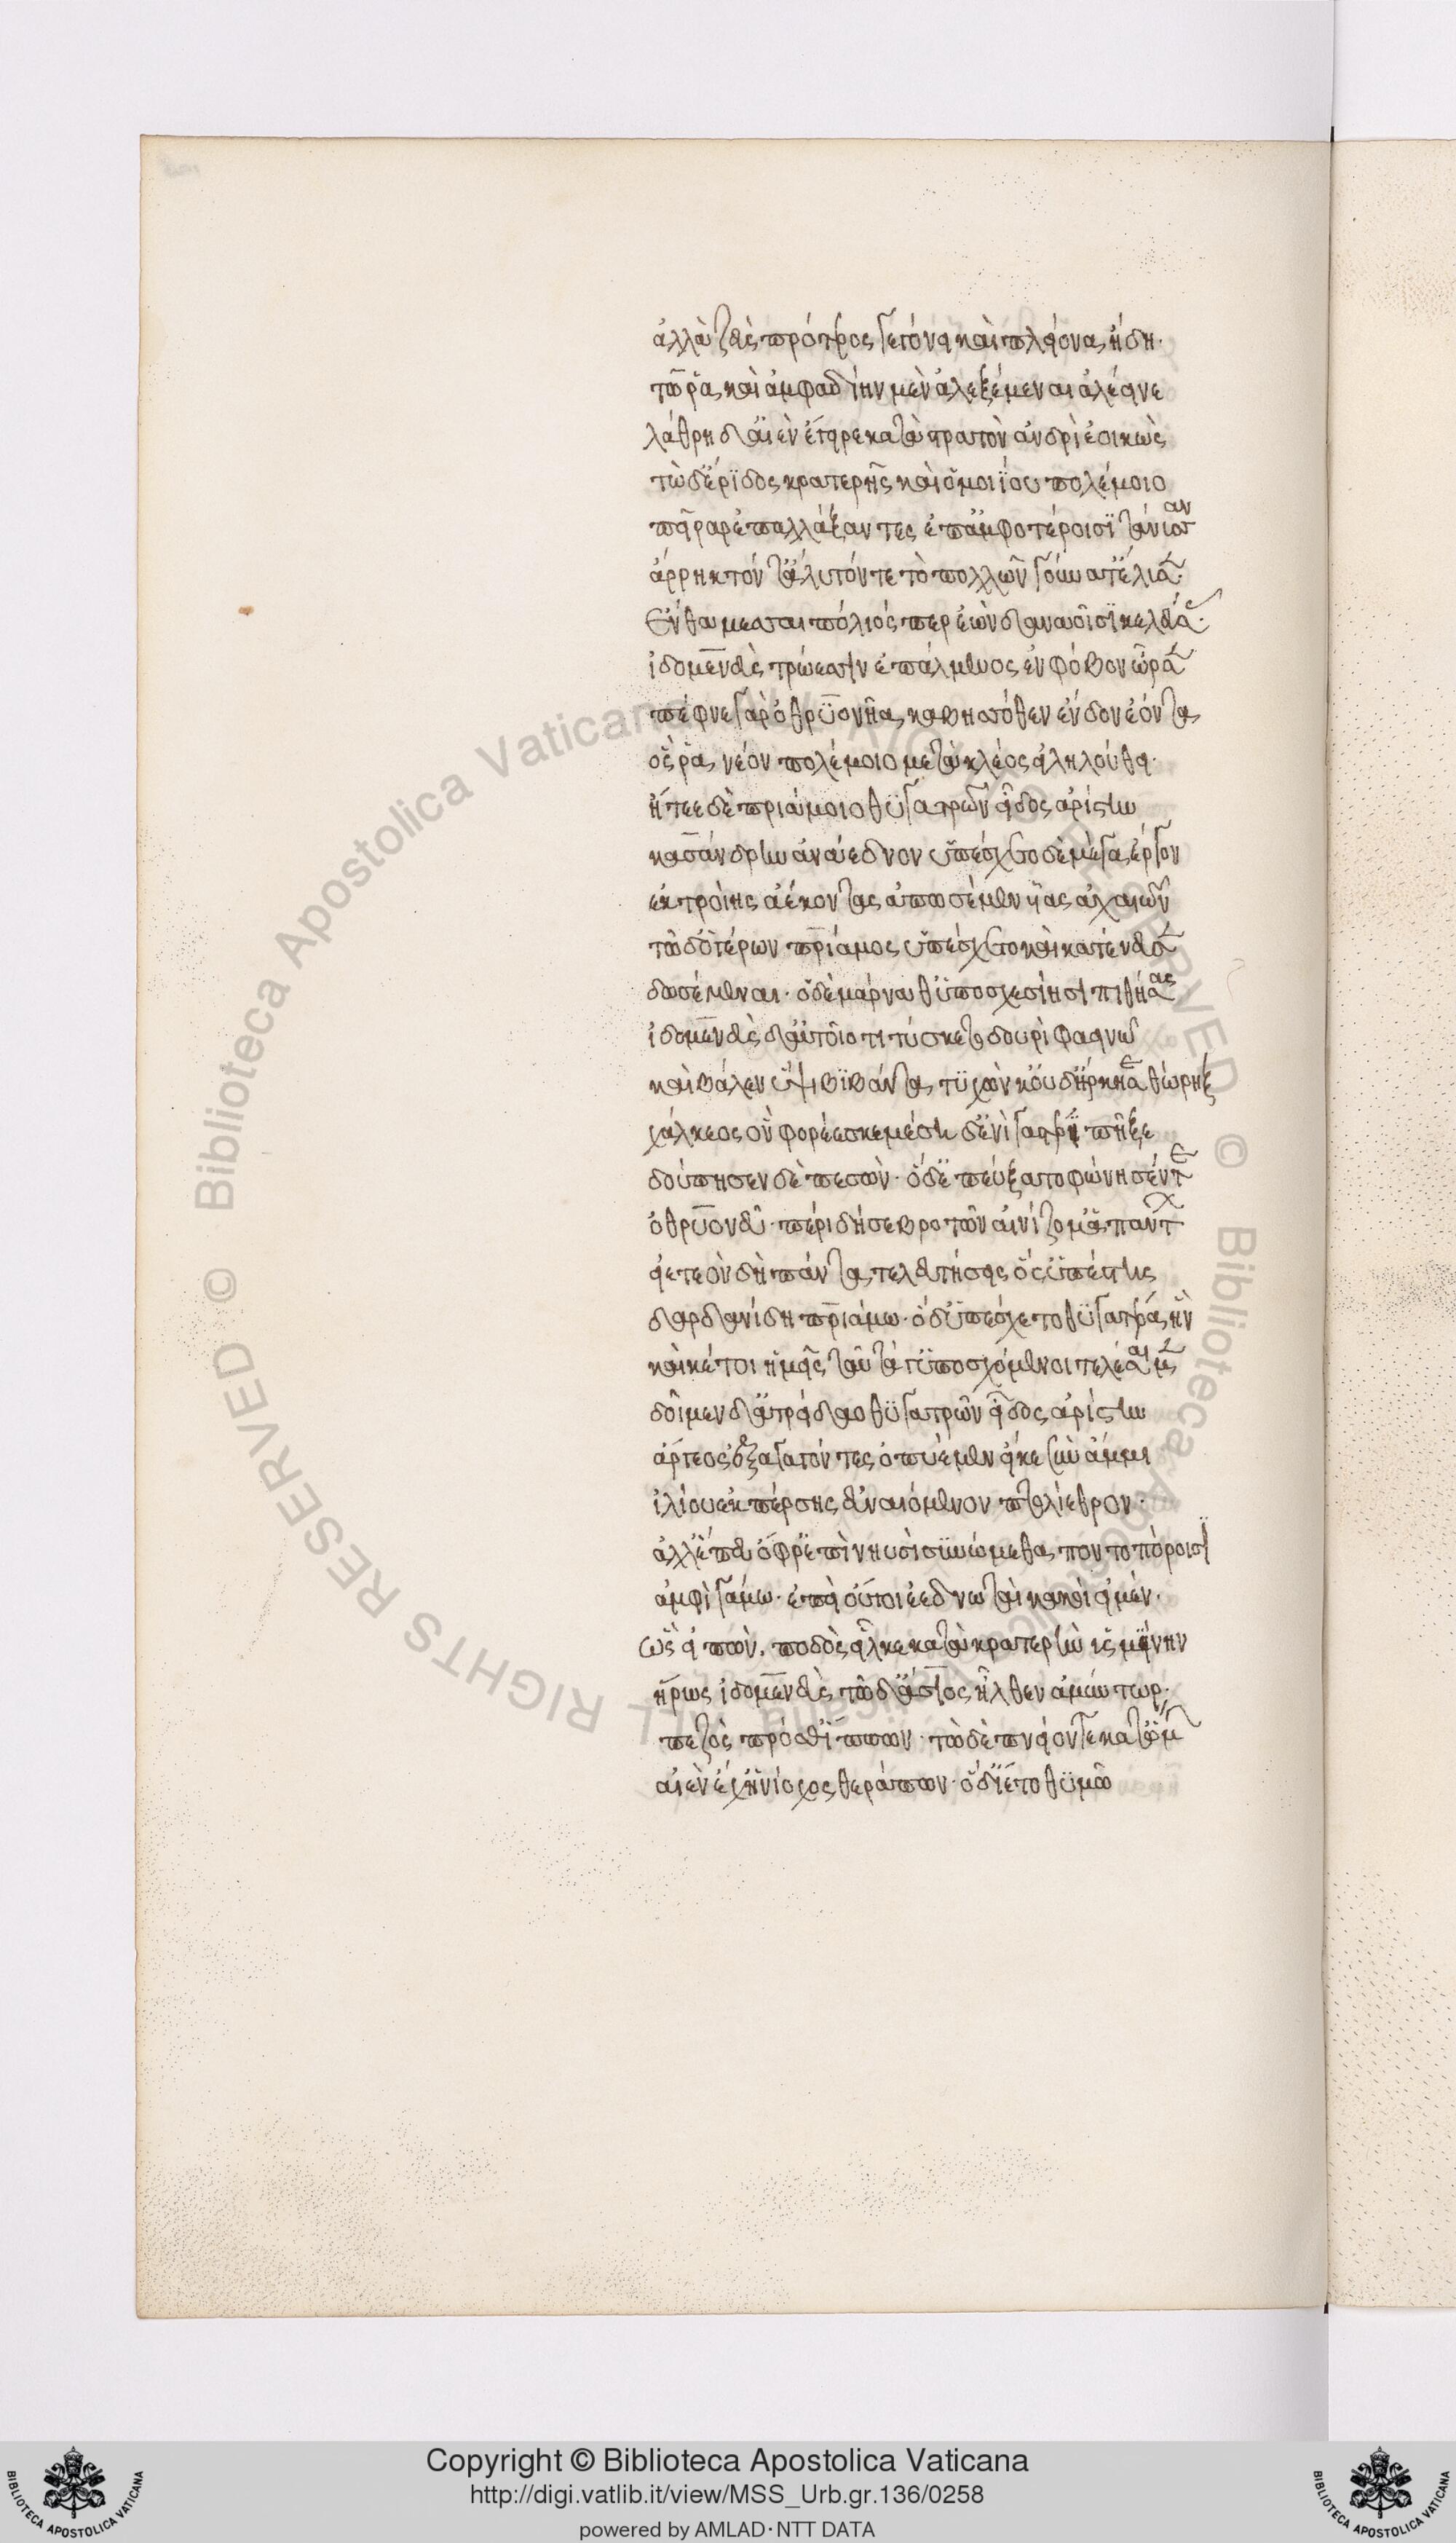 ἀλλὰ ζεὺς πρότερος γεγόνει καὶ πλείονα ἤδη·
τῶ ῥα καὶ ἀμφαδίην μὲν ἀλεξέμεναι ἀλέεινε
λάθρη δ' αἰὲν ἔγειρε κατὰ στρατὸν ἀνδρὶ ἐοικὼς
τὼ δ' ἔριδος κρατερῆς καὶ ὁμοιΐου πολέμοιο
πεῖραρ ἐπαλλάξαντες ἐπ' ἀμφοτέροισι τάνυσσαν
ἄρρηκτόν τ' ἄλυτόν τε τὸ πολλῶν γούνατ' ἔλυσεν·
Ἔνθα μεσαιπόλιός περ ἐὼν δαναοῖσι κελεύσας·
ἰδομενεὺς τρώεσσιν ἐπάλμενος ἐν φόβον ὦρσε
πέφνε γὰρ ὀθρυονῆα καβησόθεν ἔνδον ἐόντα
ὅς ῥα νέον πολέμοιο μετὰ κλέος εἰληλούθει·
ἤτεε δὲ πριάμοιο θυγατρῶν εἶδος ἀρίστην
κασσάνδρην ἀνάεδνον ὑπέσχετο δὲ μέγα ἔργον
ἐκ τροίης ἀέκοντας ἀπωσέμεν υἷας ἀχαιῶν
τῶ δ' ὁ γέρων πρίαμος ὑπέσχετο καὶ κατένευσε
δωσέμεναι· ὁ δὲ μάρναθ' ὑποσχεσίῃσι πιθήσας
ἰδομενεὺς δ' αὐτοῖο τιτύσκετο δουρὶ φαεινῶ
καὶ βάλεν ὕψι βιβάντα τυχὼν κ' οὐδ' ἤρκεσε θώρηξ
χάλκεος ὃν φορέεσκε μέσῃ δ' ἐνὶ γαστέρι πῆξε
δούπησεν δὲ πεσών· ὁ δ' ἐπεύξατο φώνησέν τε
ὀθρυονεῦ· πέρι δή σε βροτῶν αἰνίζομ' ἁπάντων
εἰ ἐτεὸν δὴ πάντα τελευτήσεις ὅσ' ὑπέστης
δαρδανίδῃ πριάμω· ὁ δ' ὑπέσχετο θυγατέρα ἣν
καὶ κέ τοι ἡμεῖς ταῦτά γ' ὑποσχόμενοι τελέσαιμεν
δοῖμεν δ' ἀτρείδαο θυγατρῶν εἶδος ἀρίστην
ἄργεος ἐξαγαγόντες ὀπυέμεν εἴ κε σὺν ἄμμι
ἰλίου ἐκπέρσῃς εὐναιόμενον πτολίεθρον·
ἀλλ' ἕπευ ὄφρ' ἐπὶ νηυσὶ συνώμεθα ποντοπόροισι
ἀμφὶ γάμω· ἐπεὶ οὔτοι ἐεδνωταὶ κακοί εἰμεν·
ὣς εἰπὼν. ποδὸς εἷλκε κατὰ κρατερὴν ὑσμίνην
ἥρως ἰδομενεὺς τῶ δ' ἄσιος ἦλθεν ἀμύντωρ·
πεζὸς πρόσθ' ἵππων· τὼ δὲ πνείοντε κατ' ὤμων
αἰὲν ἔχ' ἡνίοχος θεράπων· ὁ δ' ἵετο θυμῶ
Copyright © Biblioteca Apostolica Vaticana
http://digi.vatlib.it/view/MSS_Urb.gr.136/0258
powered by AMLAD·NTT DATA